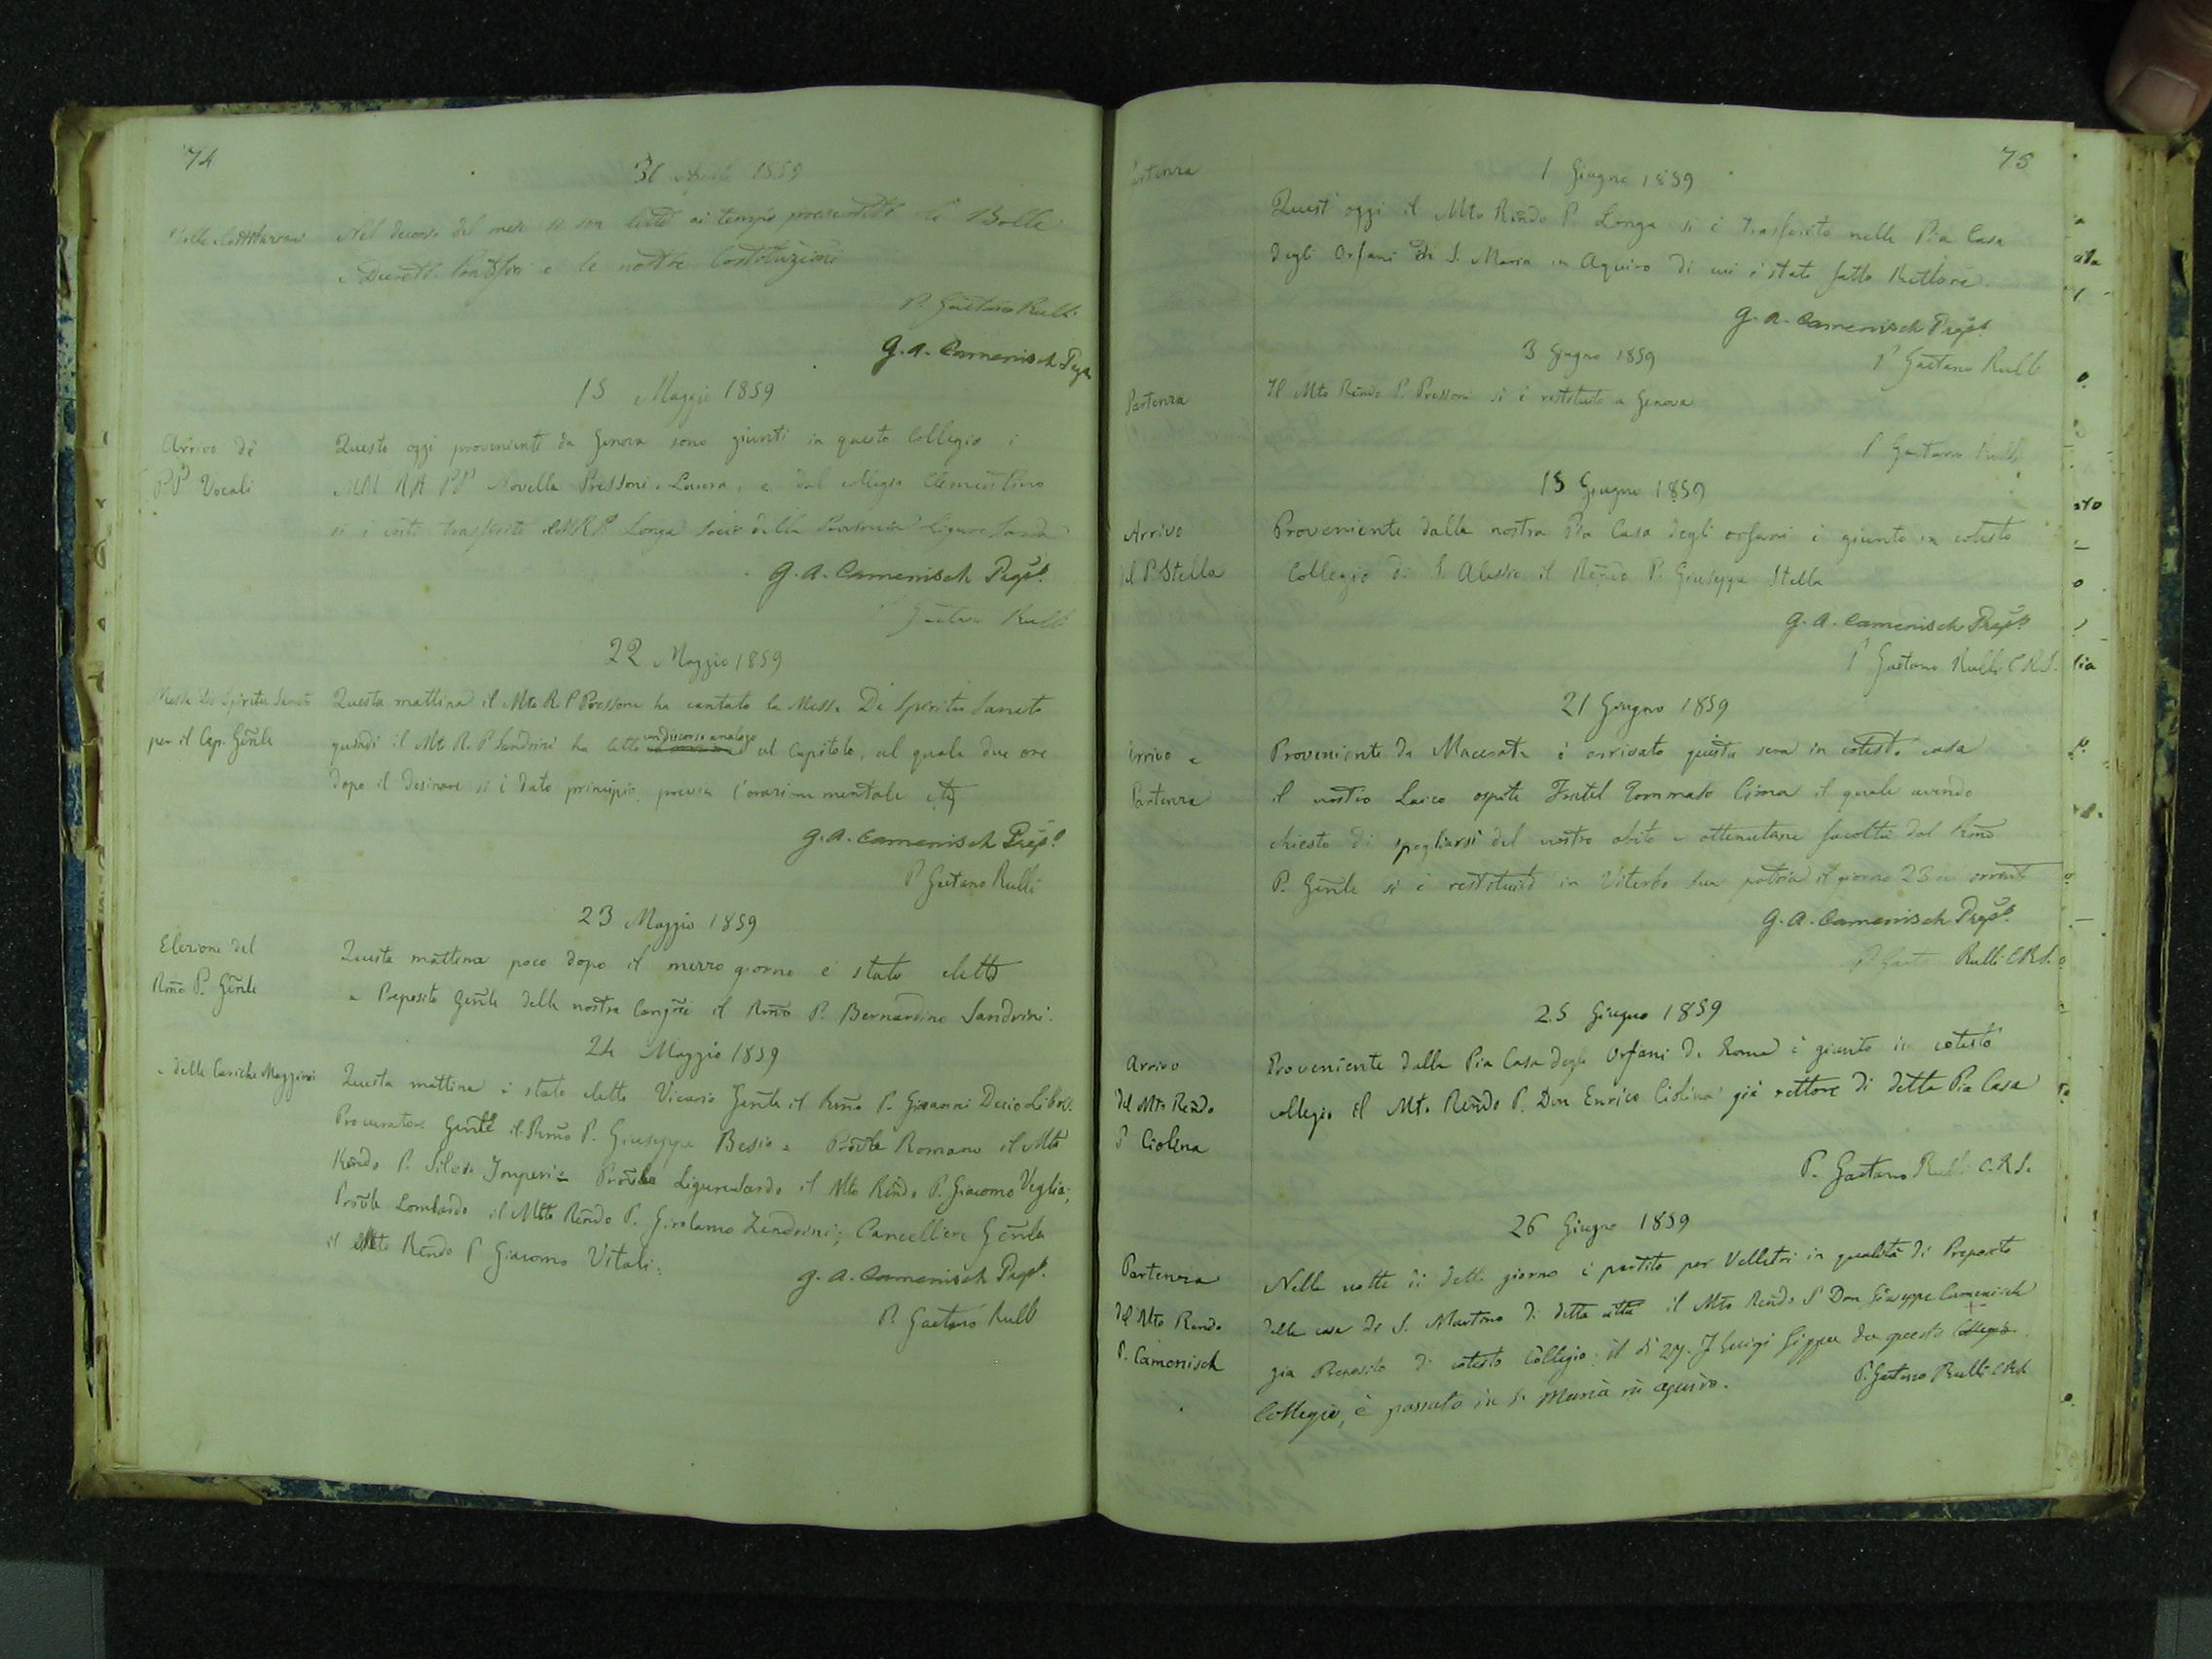 74
30 Aprile 1859
Bolle e Costituzioni
Nel decorso del mese si son lette ai tempi prescritti le Bolle
e Decreti Pontifici e le nostre Costituzioni
P. Gaetano Rulli
G. A. Camenisch Prep.
15 Maggio 1859
Arrivo di
PP Vocali
Questo oggi provenienti da Genova sono giunti in questo Collegio i
MM RR PP Novella Pressoni e, dal collegio Clementino
si è costì trasferito il M.R.P. Longa Socio della Provincia Ligure Sarda
G. A. Camenisch Prep.to
P. Gaetano Rulli
22 Maggio 1859
Messa De Spiritu Sancto
per il Cap. Gen̄le
Questa mattina il Mto R. P Pressone ha cantato la Messa De Spiritu Sancto
un discorso analogo
quindi il Mt. R. P. Sandrini ha letto al Capitolo, al quale due ore
dopo il desinare si è dato principio previa l'orazione mentale
G. A. Camenisch Prep.to
P Gaetano Rulli
23 Maggio 1859
Elezione del
Rmo P. Gen̄le
Questa mattina poco dopo il mezzo giorno è stato eletto
a Preposito Gen̄le della nostra Congñe il Rmo P. Bernardino Sandrini.
24 Maggio 1859
e delle Cariche Maggiori
Questa mattina è stato eletto Vicario Gen̄le il Rmo P. Giovanni Decio Libois
Procuratore Gen̄le il Rmo P. Giuseppe Besio = Prov̄le Romano il Mto
Rēndo P. Silvio Imperi = Prov̄le Ligure Sardo il Mto Rēndo P. Giacomo Veglia;
Prov̄le Lombardo il Mto Rēndo P. Girolamo Zendrini; Cancelliere Gen̄le
il Mto Rēndo P Giacomo Vitali.
G. A. Camenisch Prep.to
P. Gaetano Rulli
75
Partenza
1 Giugno 1859
Quest' oggi il Mto Rēndo P. Longa si è trasferito nella Pia Casa
degli Orfani di S. Maria in Aquiro di cui è stato fatto Rettore.
G. A. Camenisch Prep.to
P Gaetano Rulli
3 Giugno 1859
Partenza
Il Mto Rēndo P. Pressoni si è restituito a Genova
P Gaetano Rulli
15 Giugno 1859
Arrivo
del P. Stella
Proveniente dalla nostra Pia Casa degli orfani è giunto in cotesto
Collegio di S. Alessio il Rēndo P. Giuseppe Stella
G. A. Camenisch Prep.to
P Gaetano Rulli C.R.S.
21 Giugno 1859
Arrivo e
Partenza
Proveniente da Macerata è arrivato questa sera in cotesta casa
il nostro Laico ospite Fratel Tommaso Cima il quale avendo
chiesto di spogliarsi del nostro abito e ottenutane facoltà dal Rmo
P. Gen̄le si è restituito in Viterbo sua patria il giorno 23 corrente
G. A. Camenisch Prep.to
P Gaeta Rulli C.R.S.
25 Giugno 1859
Arrivo
del Mto Rēndo
P Ciolina
Proveniente dalla Pia Casa degli Orfani di Roma è giunto in cotesto
collegio il Mto Rēndo P. Don Enrico Ciolina già rettore di detta Pia Casa
P. Gaetano Rulli C.R.S.
26 Giugno 1859
Partenza
del Mto Rendo
P. Camenisch
Nella notte di detto giorno è partito per Velletri in qualità di Preposito
della casa di S. Martino di detta città il Mto Rēndo P Don Giuseppe Camenisch
già Preposito di cotesto Collegio: il dì 27. F Luigi da questo Collegio
Collegio, è passato in S. Maria in aquiro.
P. Gaetano Rulli CRS